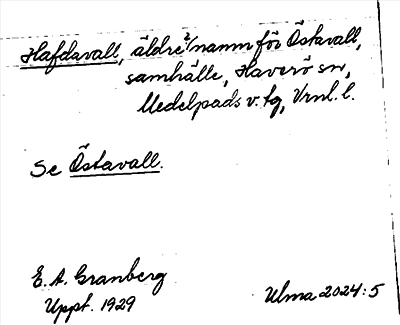 Hafdavall, äldre namn för Östavall,
samhälle, Haverö sn,
Medelpads v. tg, Vrnl. l.
Se Östavall.
E. A. Granberg
Uppt. 1929
Ulma 2024:5